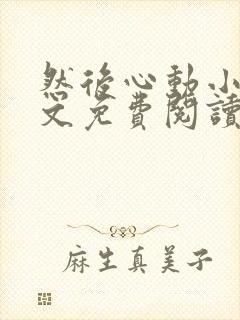 然後心動小
文免費閱讀
麻生真美子